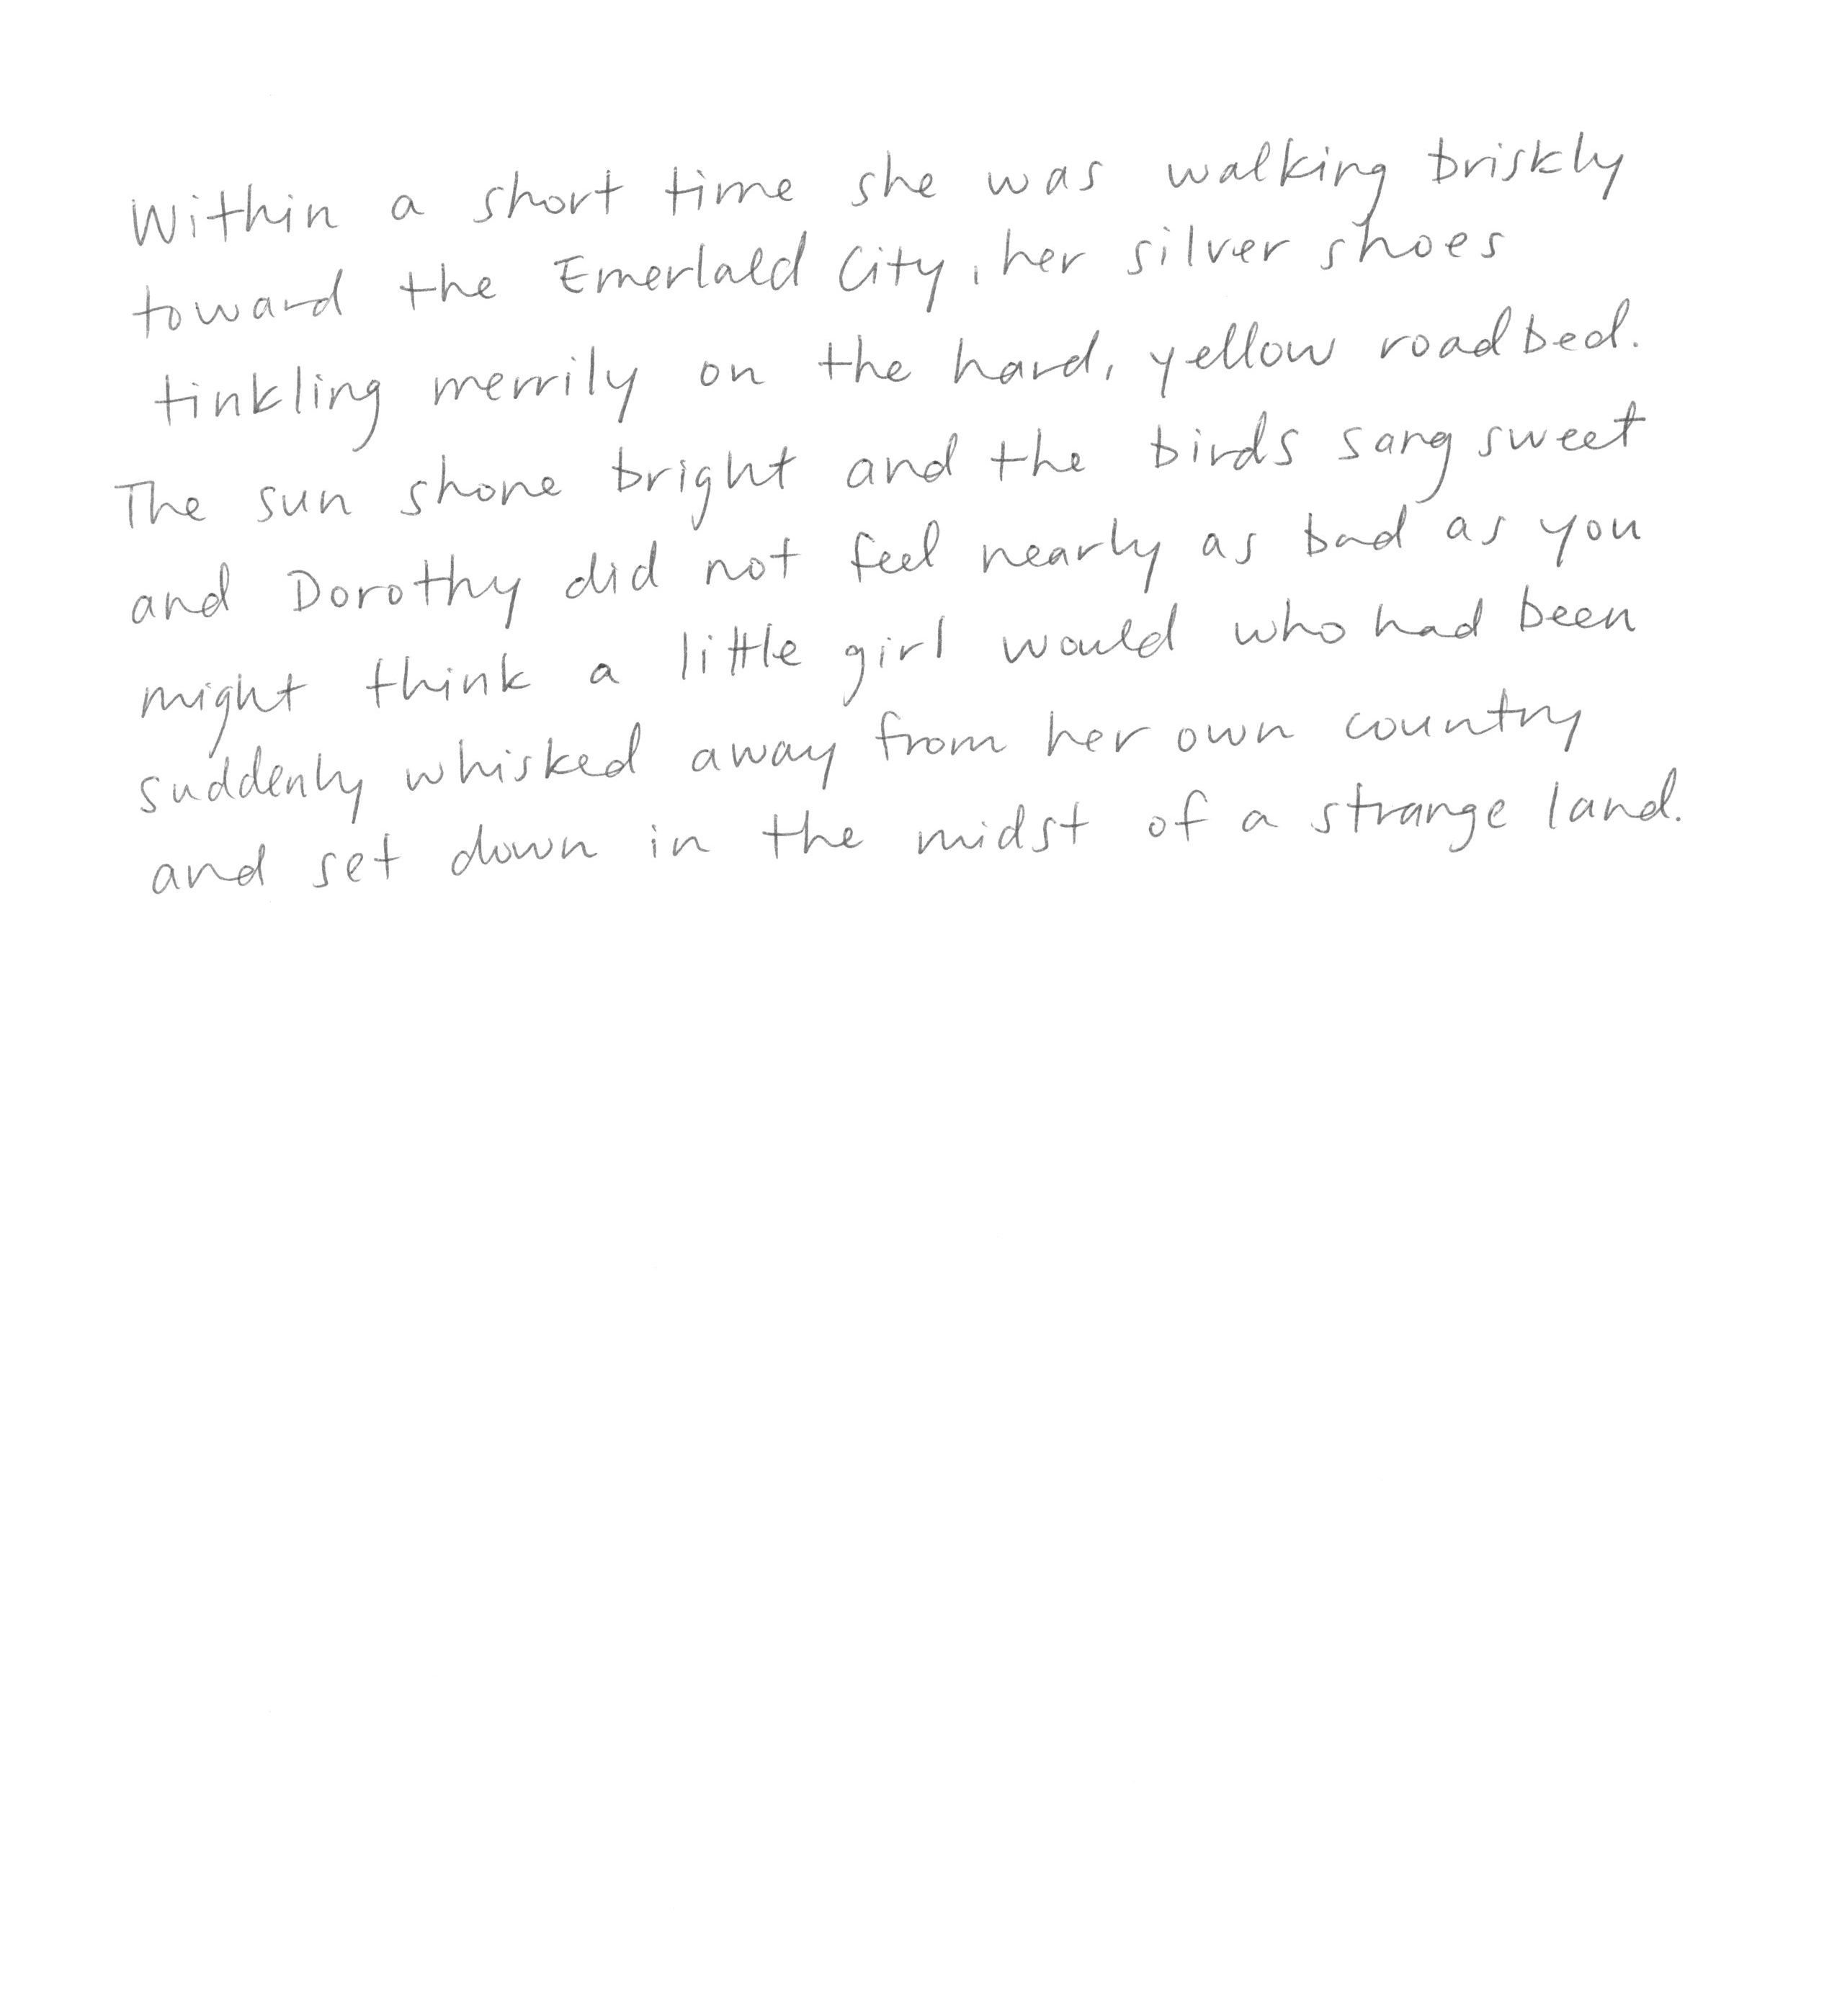 Within a short time she was walking briskly
toward the Emerlald City, her silver shoes
tinkling merrily on the hard, yellow roadbed.
The sun shone bright and the birds sang sweet
and Dorothy did not feel nearly as bad as you
might think a little girl would who had been
suddenly whisked away from her own country
and set down in the midst of a strange land.